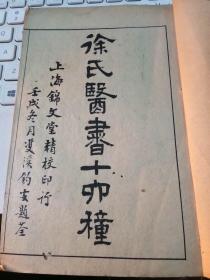 徐氏醫書十六種
上海錦文堂精校印行
壬戌冬月雙溪釣玄題荃